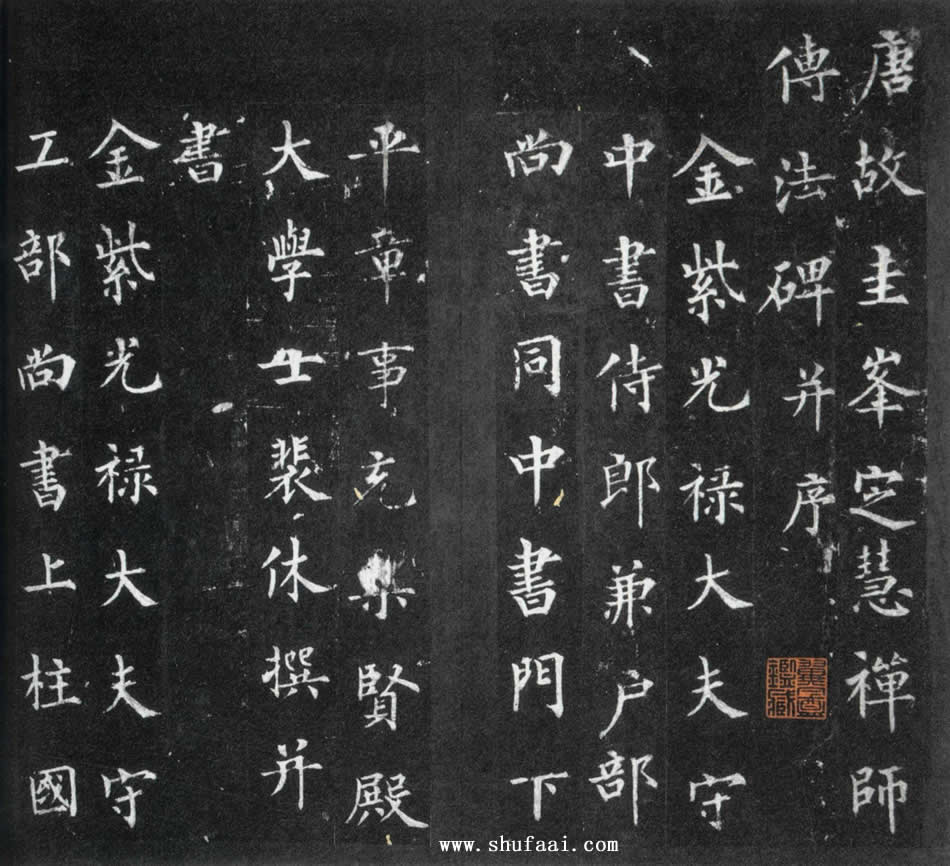 唐故圭峯定慧禪師
傳法碑并序
金紫光祿大夫守
中書侍郎兼户部
尚書同中書門下
平章事充集賢殿
大學士裴休撰并
書
金紫光祿大夫守
工部尚書上柱國
www.shufaai.com